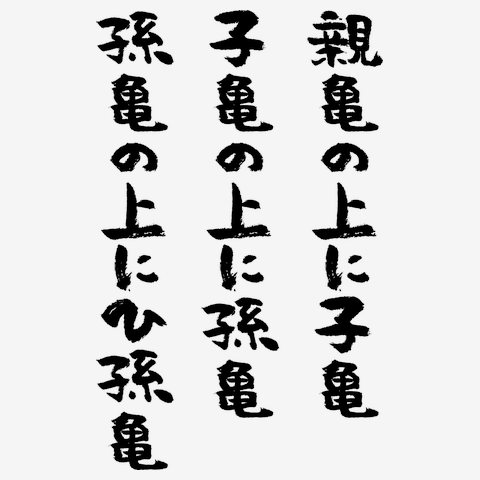 親亀の上に子亀
子亀の上に孫亀
孫亀の上にひ孫亀